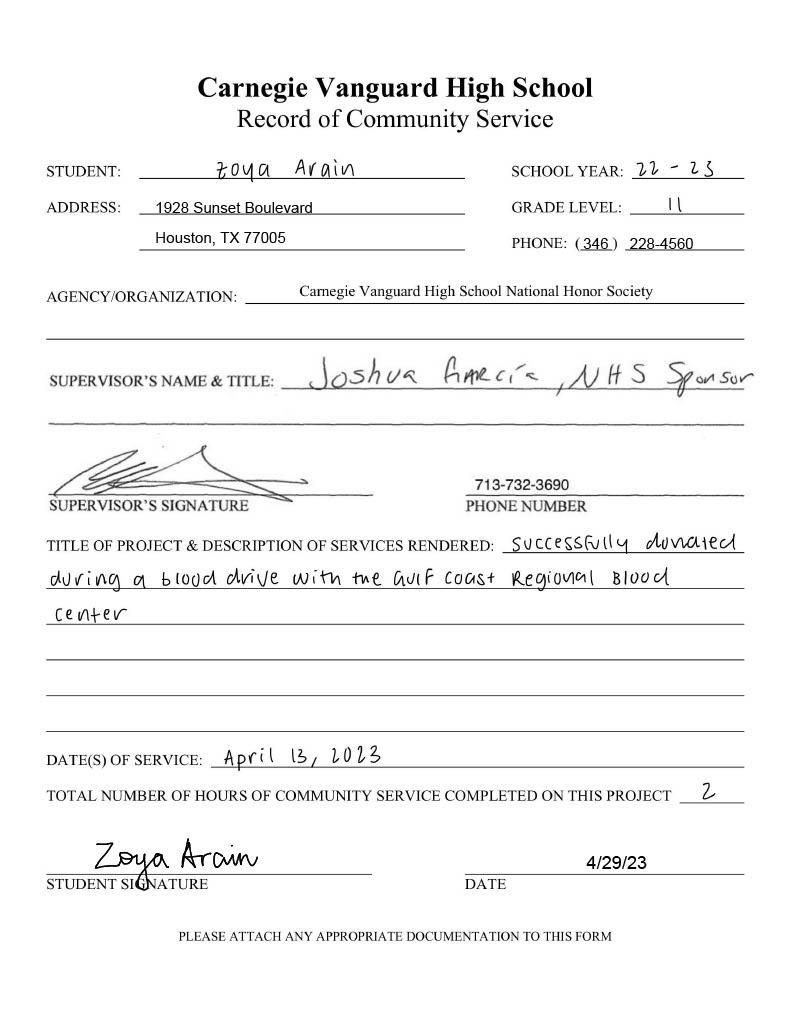 Carnegie Vanguard High School
Record of Community Service
STUDENT: Zoya Arain SCHOOL YEAR: 22 - 23
ADDRESS: 1928 Sunset Boulevard GRADE LEVEL: 11
Houston, TX 77005 PHONE: ( 346 ) 228-4560
AGENCY/ORGANIZATION: Carnegie Vanguard High School National Honor Society
SUPERVISOR'S NAME & TITLE: Joshua García, NHS Sponsor
713-732-3690
SUPERVISOR'S SIGNATURE PHONE NUMBER
TITLE OF PROJECT & DESCRIPTION OF SERVICES RENDERED: successfully donated
during a blood drive with the Gulf Coast Regional Blood
Center
DATE(S) OF SERVICE: April 13, 2023
TOTAL NUMBER OF HOURS OF COMMUNITY SERVICE COMPLETED ON THIS PROJECT 2
Zoya Arain 4/29/23
STUDENT SIGNATURE DATE
PLEASE ATTACH ANY APPROPRIATE DOCUMENTATION TO THIS FORM